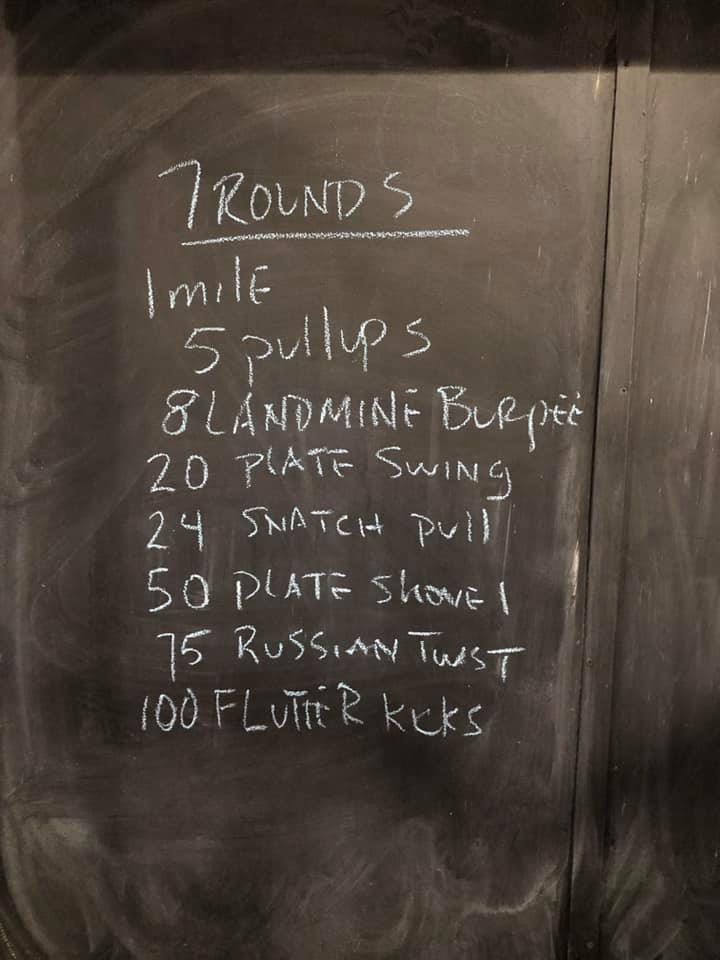 7 ROUNDS
1 milE
5 pullups
8 LANDMINE BURpEE
20 PLATE SWING
24 SNATCH pull
50 PLATE ShovEl
75 RUSSIAN TWIST
100 FLUTTER KICKS